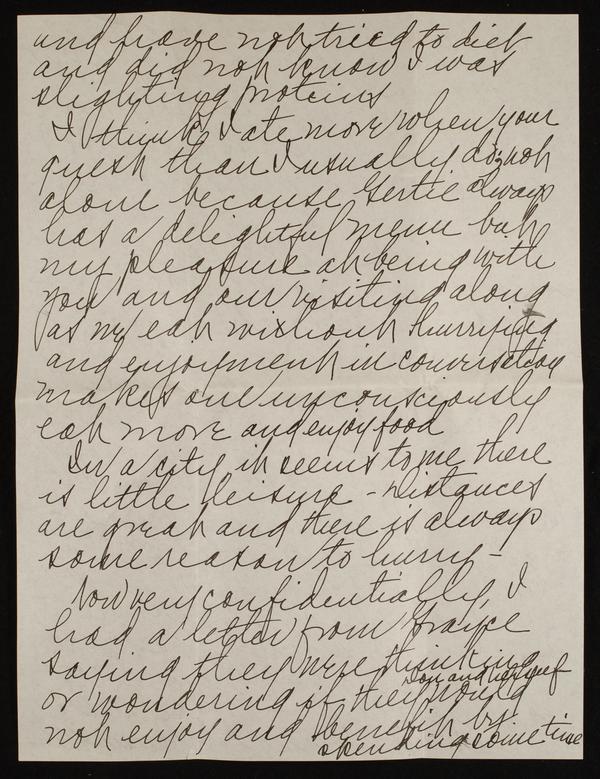 and have not tried to diet
and did not know I was
slighting proteins
I think I ate more when your
guest than I usually do; not
alone because Gertie always
has a delightful menu but
my pleasure at being with
you and our visiting along
as we eat without hurrying
and enjoyment in conversation
makes one unconsciously
eat more and enjoy food
In a city it seems to me there
is little leisure - Distances
are great and there is always
some reason to hurry -
Now very confidentially, I
had a letter from Grayce
saying they were thinking
or wondering if they would
Don and herself
not enjoy and benefit by
spending some time